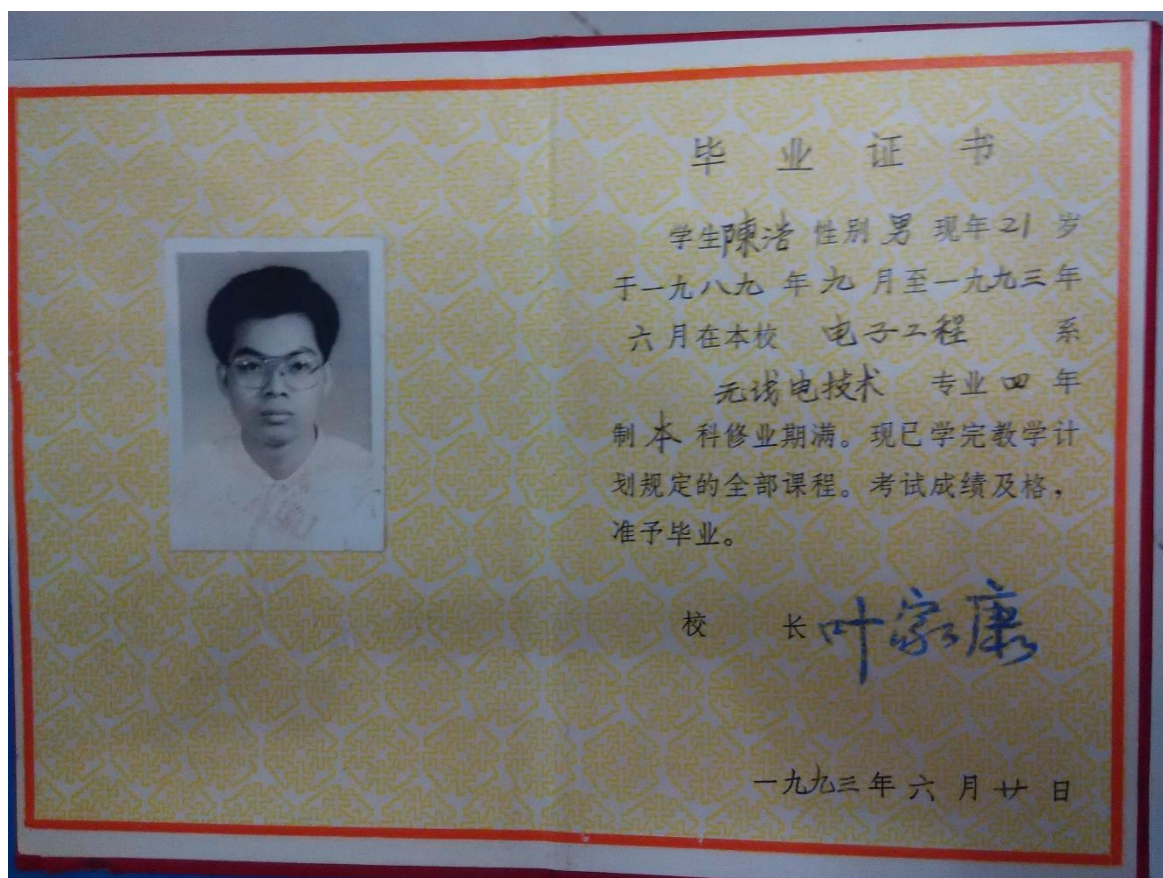 毕业证书
学生陳浩性别男现年21岁
于一九八九年九月至一九九三年
六月在本校电子工程系
无线电技术专业四年
制本科修业期满。现已学完教学计
划规定的全部课程。考试成绩及格，
准予毕业。
校长叶家康
一九九三年六月廿日